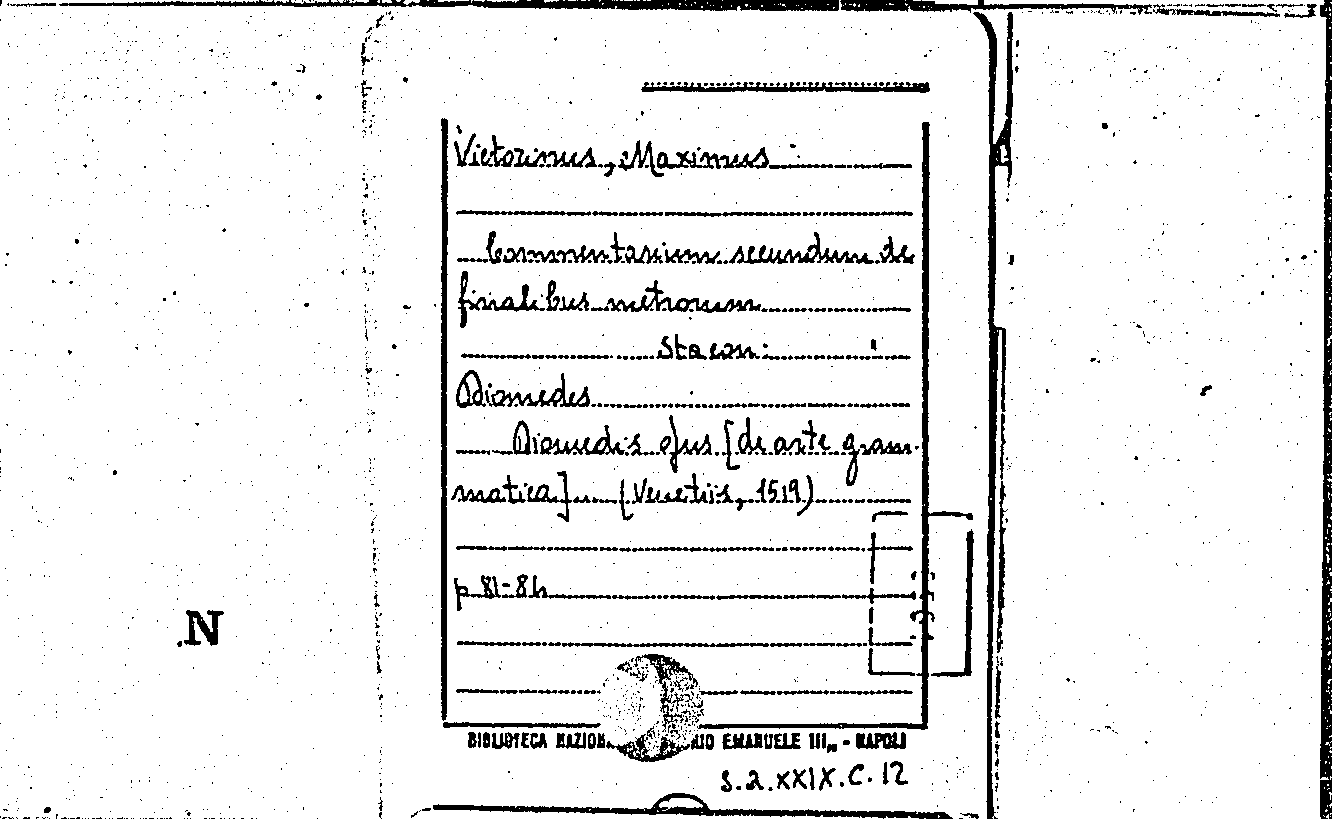 Victorinus, Maximus
Commentarium secundum de
finalibus metrorum
Sta con:
Diomedes
Diomedis opus [de arte gram-
matica] ... (Venetiis, 1519)
p 81-84
N
BIBLIOTECA NAZION IO EMANUELE III„ - NAPOLI
S.Q.XXIX.C.12